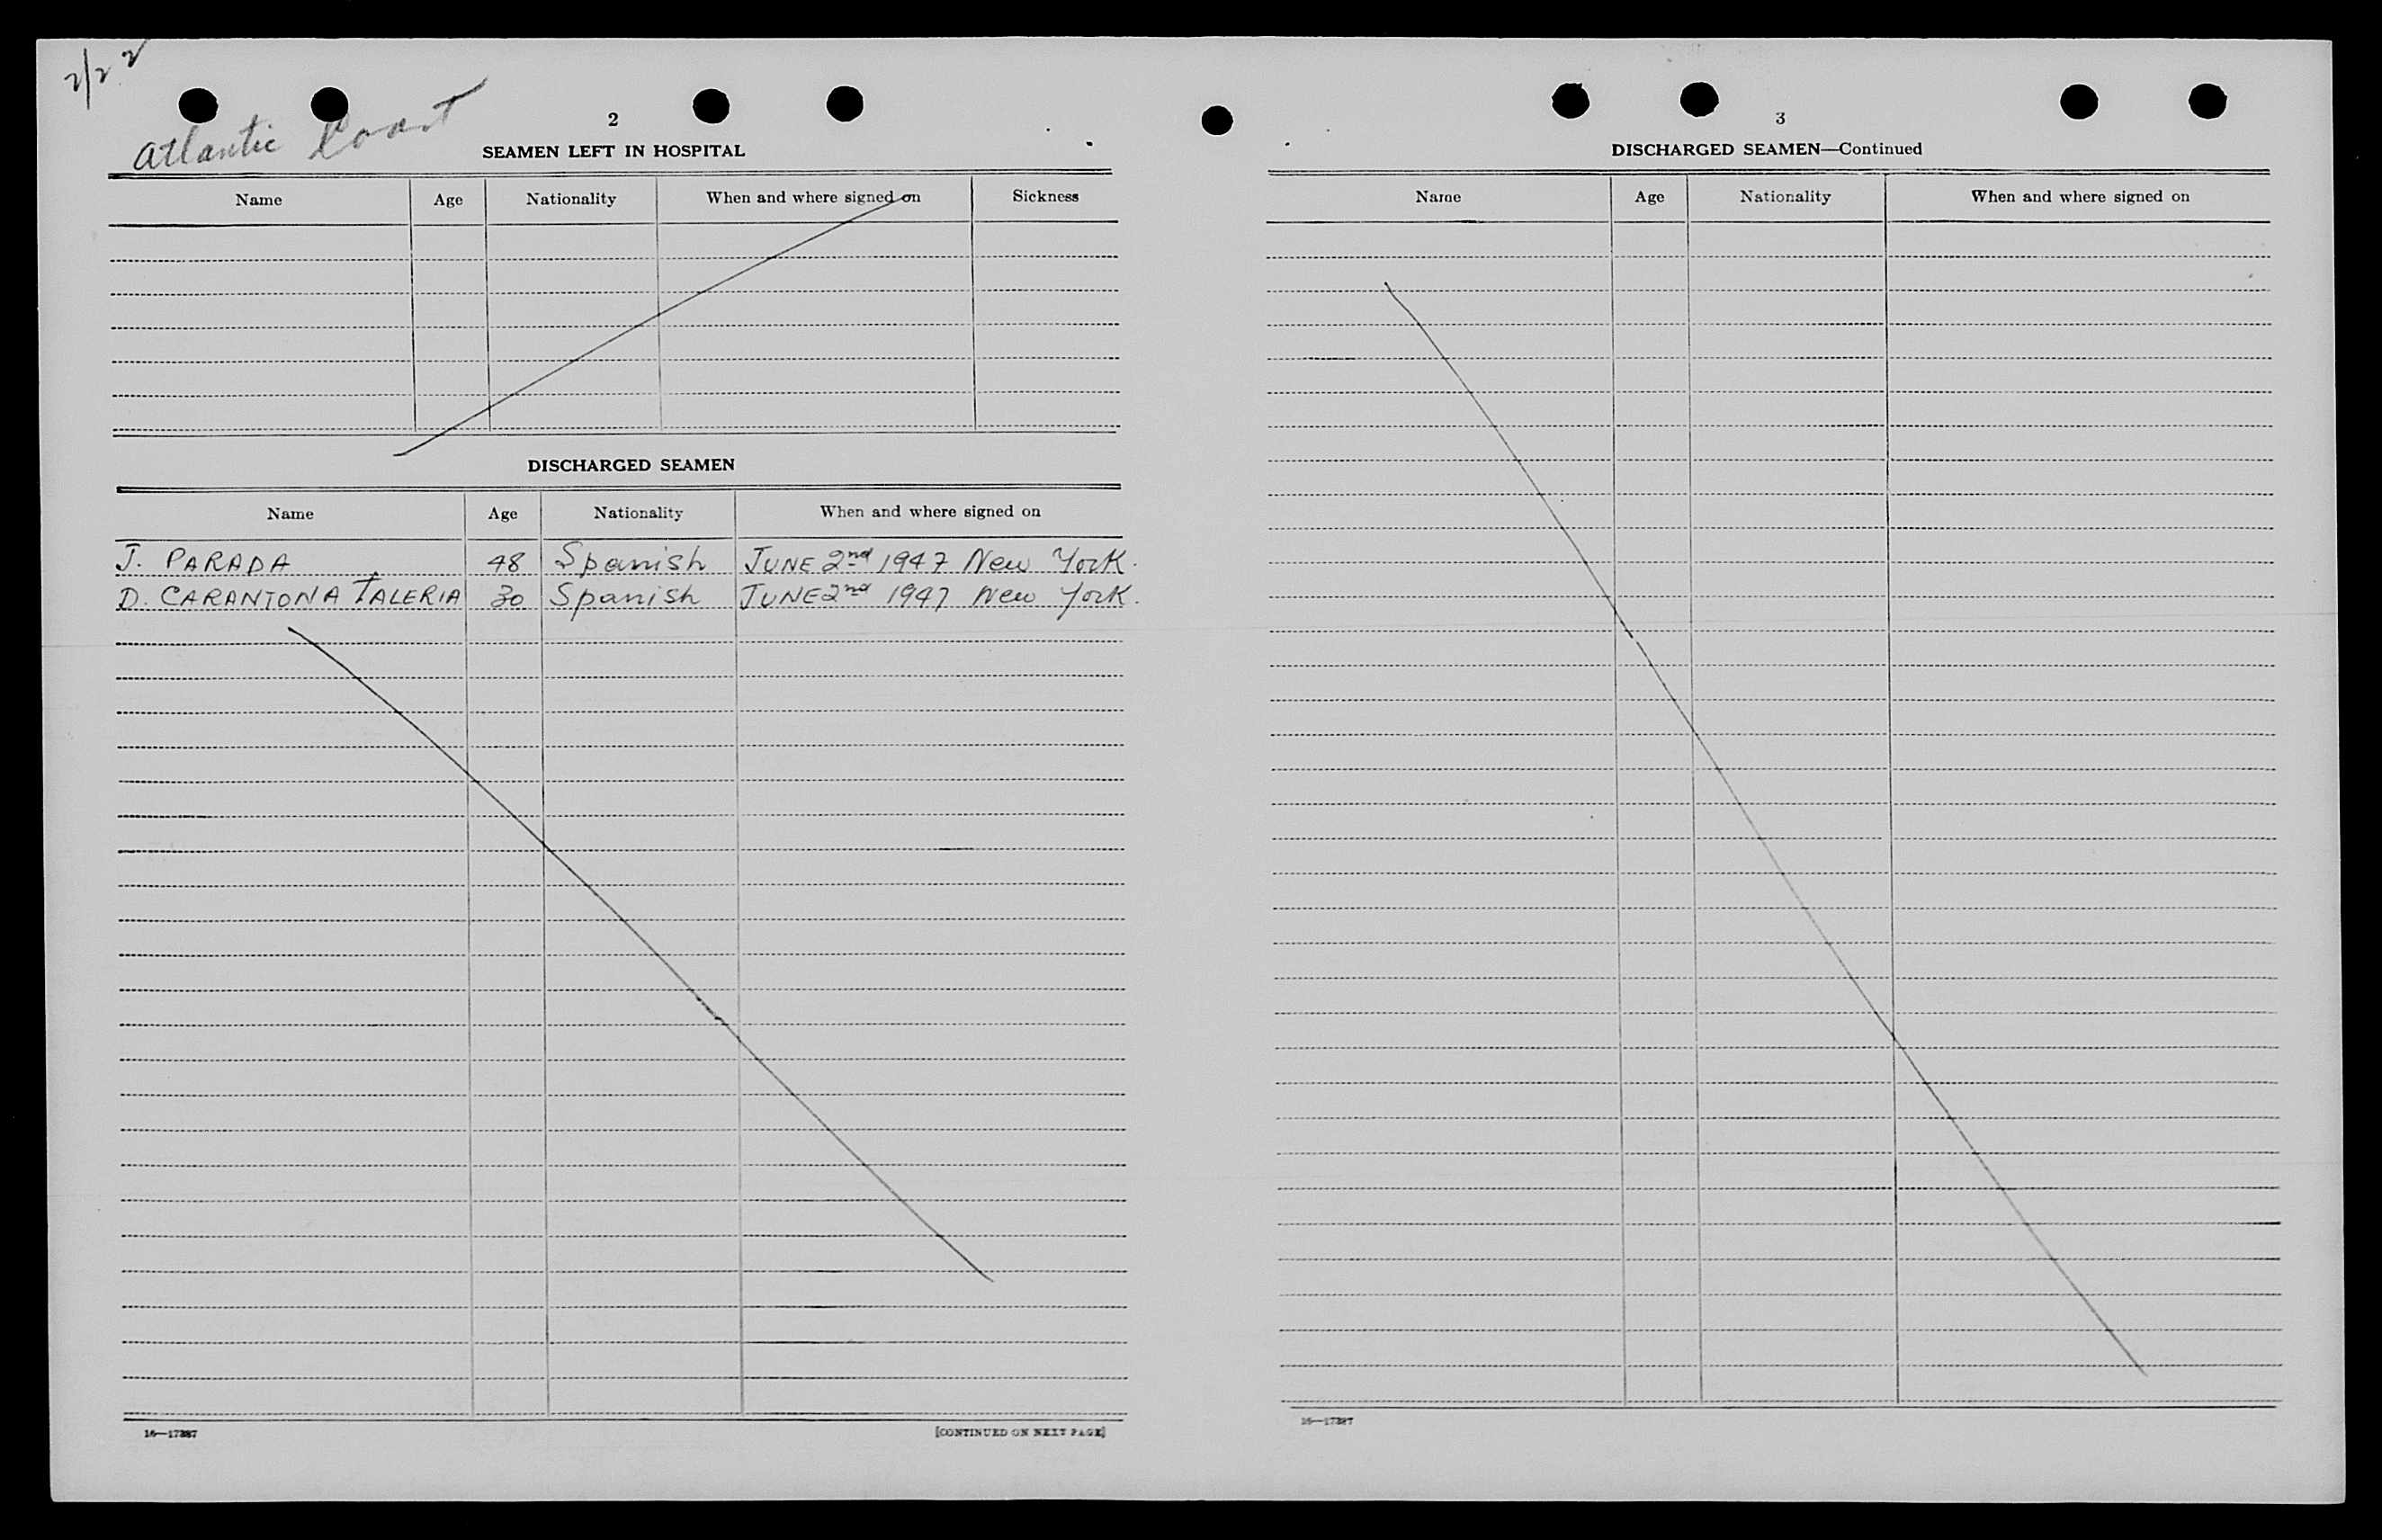 2/22
Atlantic Coast
2
SEAMEN LEFT IN HOSPITAL
Name Age Nationality When and where signed on Sickness
DISCHARGED SEAMEN
Name Age Nationality When and where signed on
J. PARADA 48 Spanish JUNE 2nd 1947 New York.
D. CARANTONA TALERIA 30 Spanish JUNE 2nd 1947 New York.
16—17387 [CONTINUED ON NEXT PAGE]
3
DISCHARGED SEAMEN—Continued
Name Age Nationality When and where signed on
16—17387